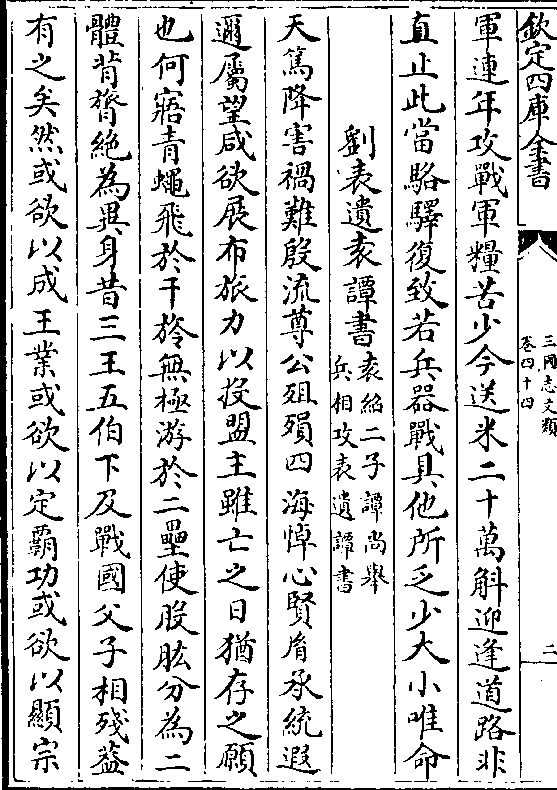 欽定四庫全書
三國志文類
卷四十四
二
軍連年攻戰軍糧苦少今送米二十萬斛迎逢道路非
直止此當駱驛復致若兵器戰具他所乏少大小唯命
劉表遺袁譚書袁紹二子譚尚舉
兵相攻表遺譚書
天篤降害禍難殷流尊公殂殞四海悼心賢胤承統遐
邇屬望咸欲展布旅力以投盟主雖亡之日猶存之願
也何寤青蠅飛於干旍無極游於二壘使股肱分為二
體背膂絶為異身昔三王五伯下及戰國父子相殘葢
有之矣然或欲以成王業或欲以定霸功或欲以顯宗